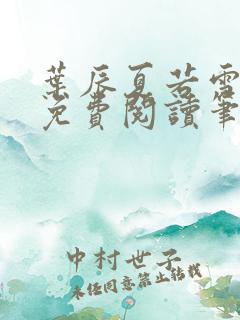 葉辰夏若雪
免費閱讀筆
中村世子
未经同意禁止转载